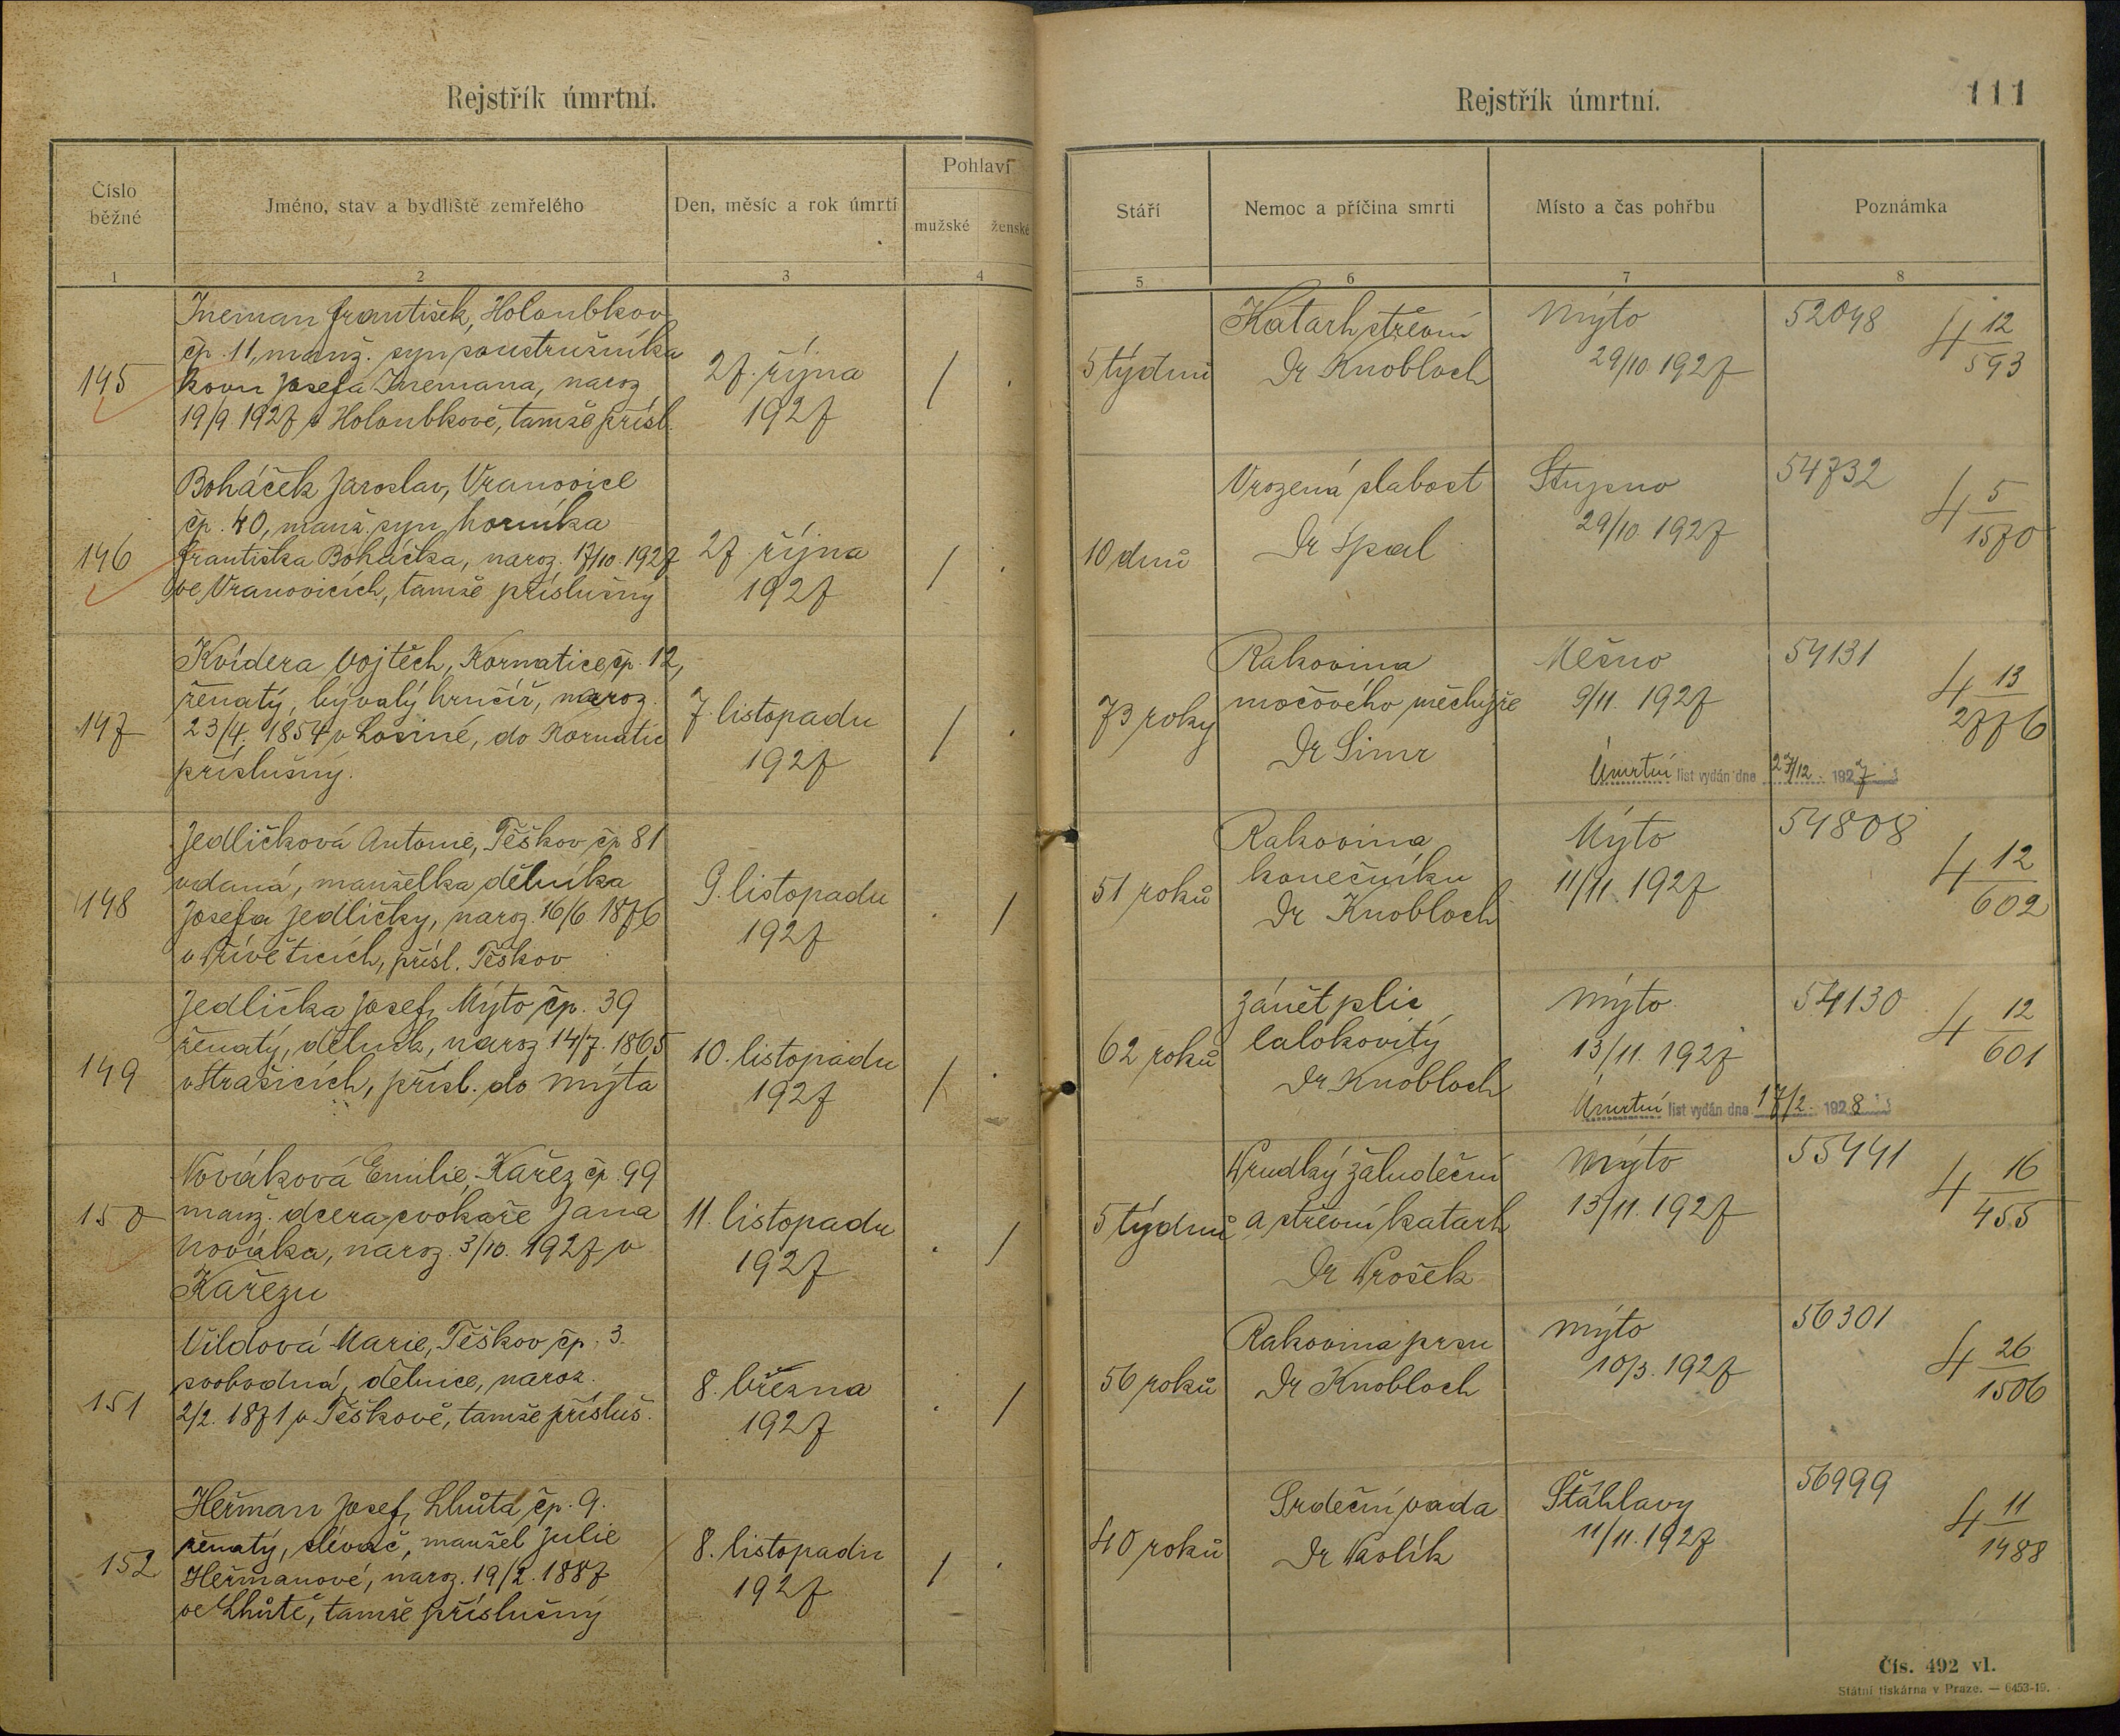 Rejstřík úmrtní.
Číslo běžné
Jméno, stav a bydliště zemřelého
Den, měsíc a rok úmrtí
Pohlaví
mužské
ženské
1
2
3
4
145
Ineman František, Holoubkov
čp. 11, manž. syn soustružníka
kovu Josefa Inemana, naroz
19/9 1927 v Holoubkově, tamže přísl.
27. října
1927
/
146
Boháček Jaroslav, Vranovice
čp. 40, manž. syn horníka
Františka Boháčka, naroz. 17/10. 1927
ve Vranovicích, tamže příslušný
27. října
1927
/
147
Kvídera Vojtěch, Kornatice čp. 12,
ženatý, bývalý hrnčíř, naroz.
23/4. 1854 v Losiné, do Kornatic
příslušný.
7. listopadu
1927
/
148
Jedličková Antonie, Těškov čp 81
vdaná, manželka dělníka
Josefa Jedličky, naroz. 16/6 1876
v Přívěticích, přísl. Těškov
9. listopadu
1927
/
149
Jedlička Josef, Mýto čp. 39
ženatý, dělník, naroz 14/7. 1865
v Strašicích, přísl. do Mýta
10. listopadu
1927
/
150
Nováková Emilie, Kařez čp. 99
manž. dcera cvokaře Jana
Nováka, naroz. 3/10. 1927 v
Kařezu
11. listopadu
1927
/
151
Vildová Marie, Těškov čp. 3.
svobodná, dělnice, naroz.
2/2. 1871 v Těškově, tamže přísluš.
8. března
1927
/
152
Heřman Josef, Lhůta čp. 9.
ženatý, slévač, manžel Julie
Heřmanové, naroz. 19/2. 1887
ve Lhůtě, tamže příslušný
8. listopadu
1927
/
Rejstřík úmrtní.
111
Stáří
Nemoc a příčina smrti
Místo a čas pohřbu
Poznámka
5
6
7
8
5 týdnů
Katarh střevní
Dr Knobloch
Mýto
29/10. 1927
52048
4 12/593
10 dnů
Vrozená slabost
Dr Spal
Stupno
29/10. 1927
54732
4 5/1570
73 roky
Rakovina
močového měchýře
Dr Simr
Mešno
9/11. 1927
54131
4 13/2776
Úmrtní list vydán dne 27/12. 1927
51 roků
Rakovina
konečníku
Dr Knobloch
Mýto
11/11. 1927
54808
4 12/602
62 roků
Zánět plic
lalokovitý
Dr Knobloch
Mýto
13/11. 1927
54130
4 12/601
Úmrtní list vydán dne 17/2. 1928
5 týdnů
Prudký žaludeční
a střevní katarh
Dr Prošek
Mýto
13/11. 1927
55441
4 16/455
56 roků
Rakovina prsu
Dr Knobloch
Mýto
10/3. 1927
56301
4 26/1506
40 roků
Srdeční vada
Dr Pavlík
Štáhlavy
11/11. 1927
56999
4 11/1488
Čís. 492 vl.
Státní tiskárna v Praze. — 6453-19.